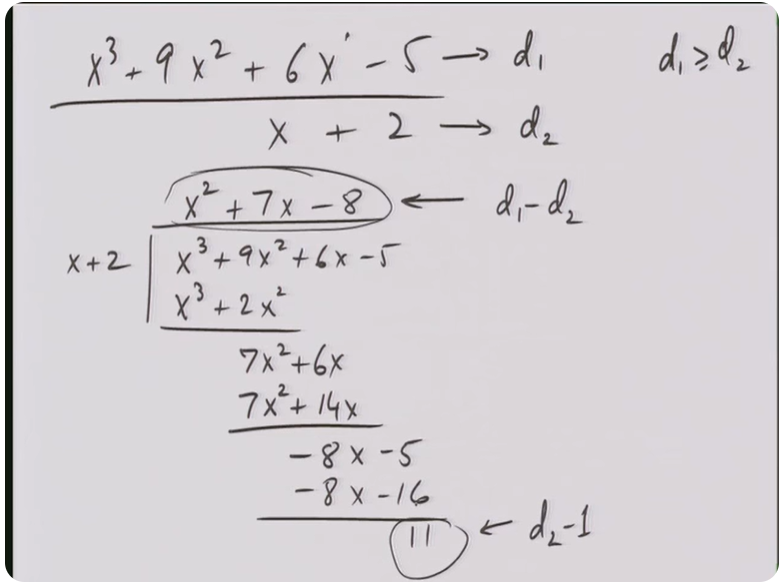 x³ + 9x² + 6x - 5 → d₁ d₁ ≥ d₂
x + 2 → d₂
x² + 7x - 8 ← d₁ - d₂
x + 2 | x³ + 9x² + 6x - 5
x³ + 2x²
7x² + 6x
7x² + 14x
- 8x - 5
- 8x - 16
11 ← d₂ - 1